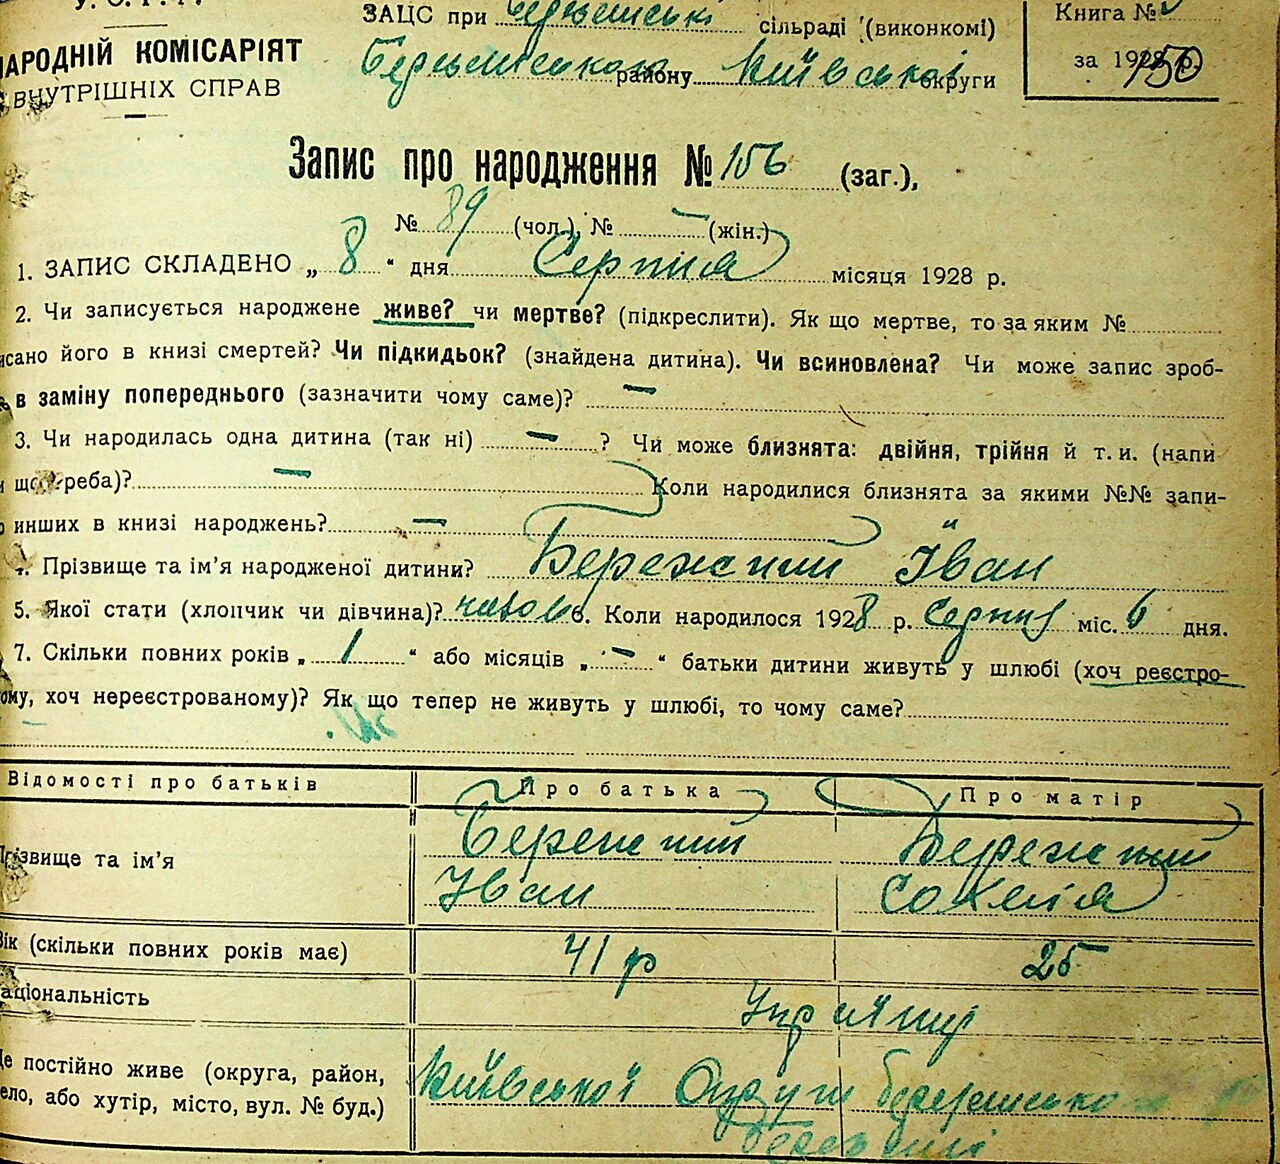 У. С. Р. Р.
НАРОДНІЙ КОМІСАРІЯТ
ВНУТРІШНІХ СПРАВ
ЗАЦС при сільраді (виконкомі)
району Київської округи
Книга №
за 1928 р. 150
Запис про народження № 156 (заг.),
№ 89 (чол.), № — (жін.)
1. ЗАПИС СКЛАДЕНО „ 8 “ дня Серпня місяця 1928 р.
2. Чи записується народжене живе? чи мертве? (підкреслити). Як що мертве, то за яким №
исано його в книзі смертей? Чи підкидьок? (знайдена дитина). Чи всиновлена? Чи може запис зроб-
в заміну попереднього (зазначити чому саме)? —
3. Чи народилась одна дитина (так ні) — ? Чи може близнята: двійня, трійня й т. и. (напи
що треба)? — Коли народилися близнята за якими №№ запи-
о инших в книзі народжень? —
4. Прізвище та ім’я народженої дитини? Бережний Іван
5. Якої стати (хлопчик чи дівчина)? чолов 6. Коли народилося 1928 р. Серпня міс. 6 дня.
7. Скільки повних років „ 1 “ або місяців „ — “ батьки дитини живуть у шлюбі (хоч реєстро-
ому, хоч нереєстрованому)? Як що тепер не живуть у шлюбі, то чому саме?
Відомості про батьків Про батька Про матір
Прізвище та ім’я Бережний Бережний
Іван
Вік (скільки повних років має) 41 р 25
Національність
Де постійно живе (округа, район, Київської Округи
село, або хутір, місто, вул. № буд.)